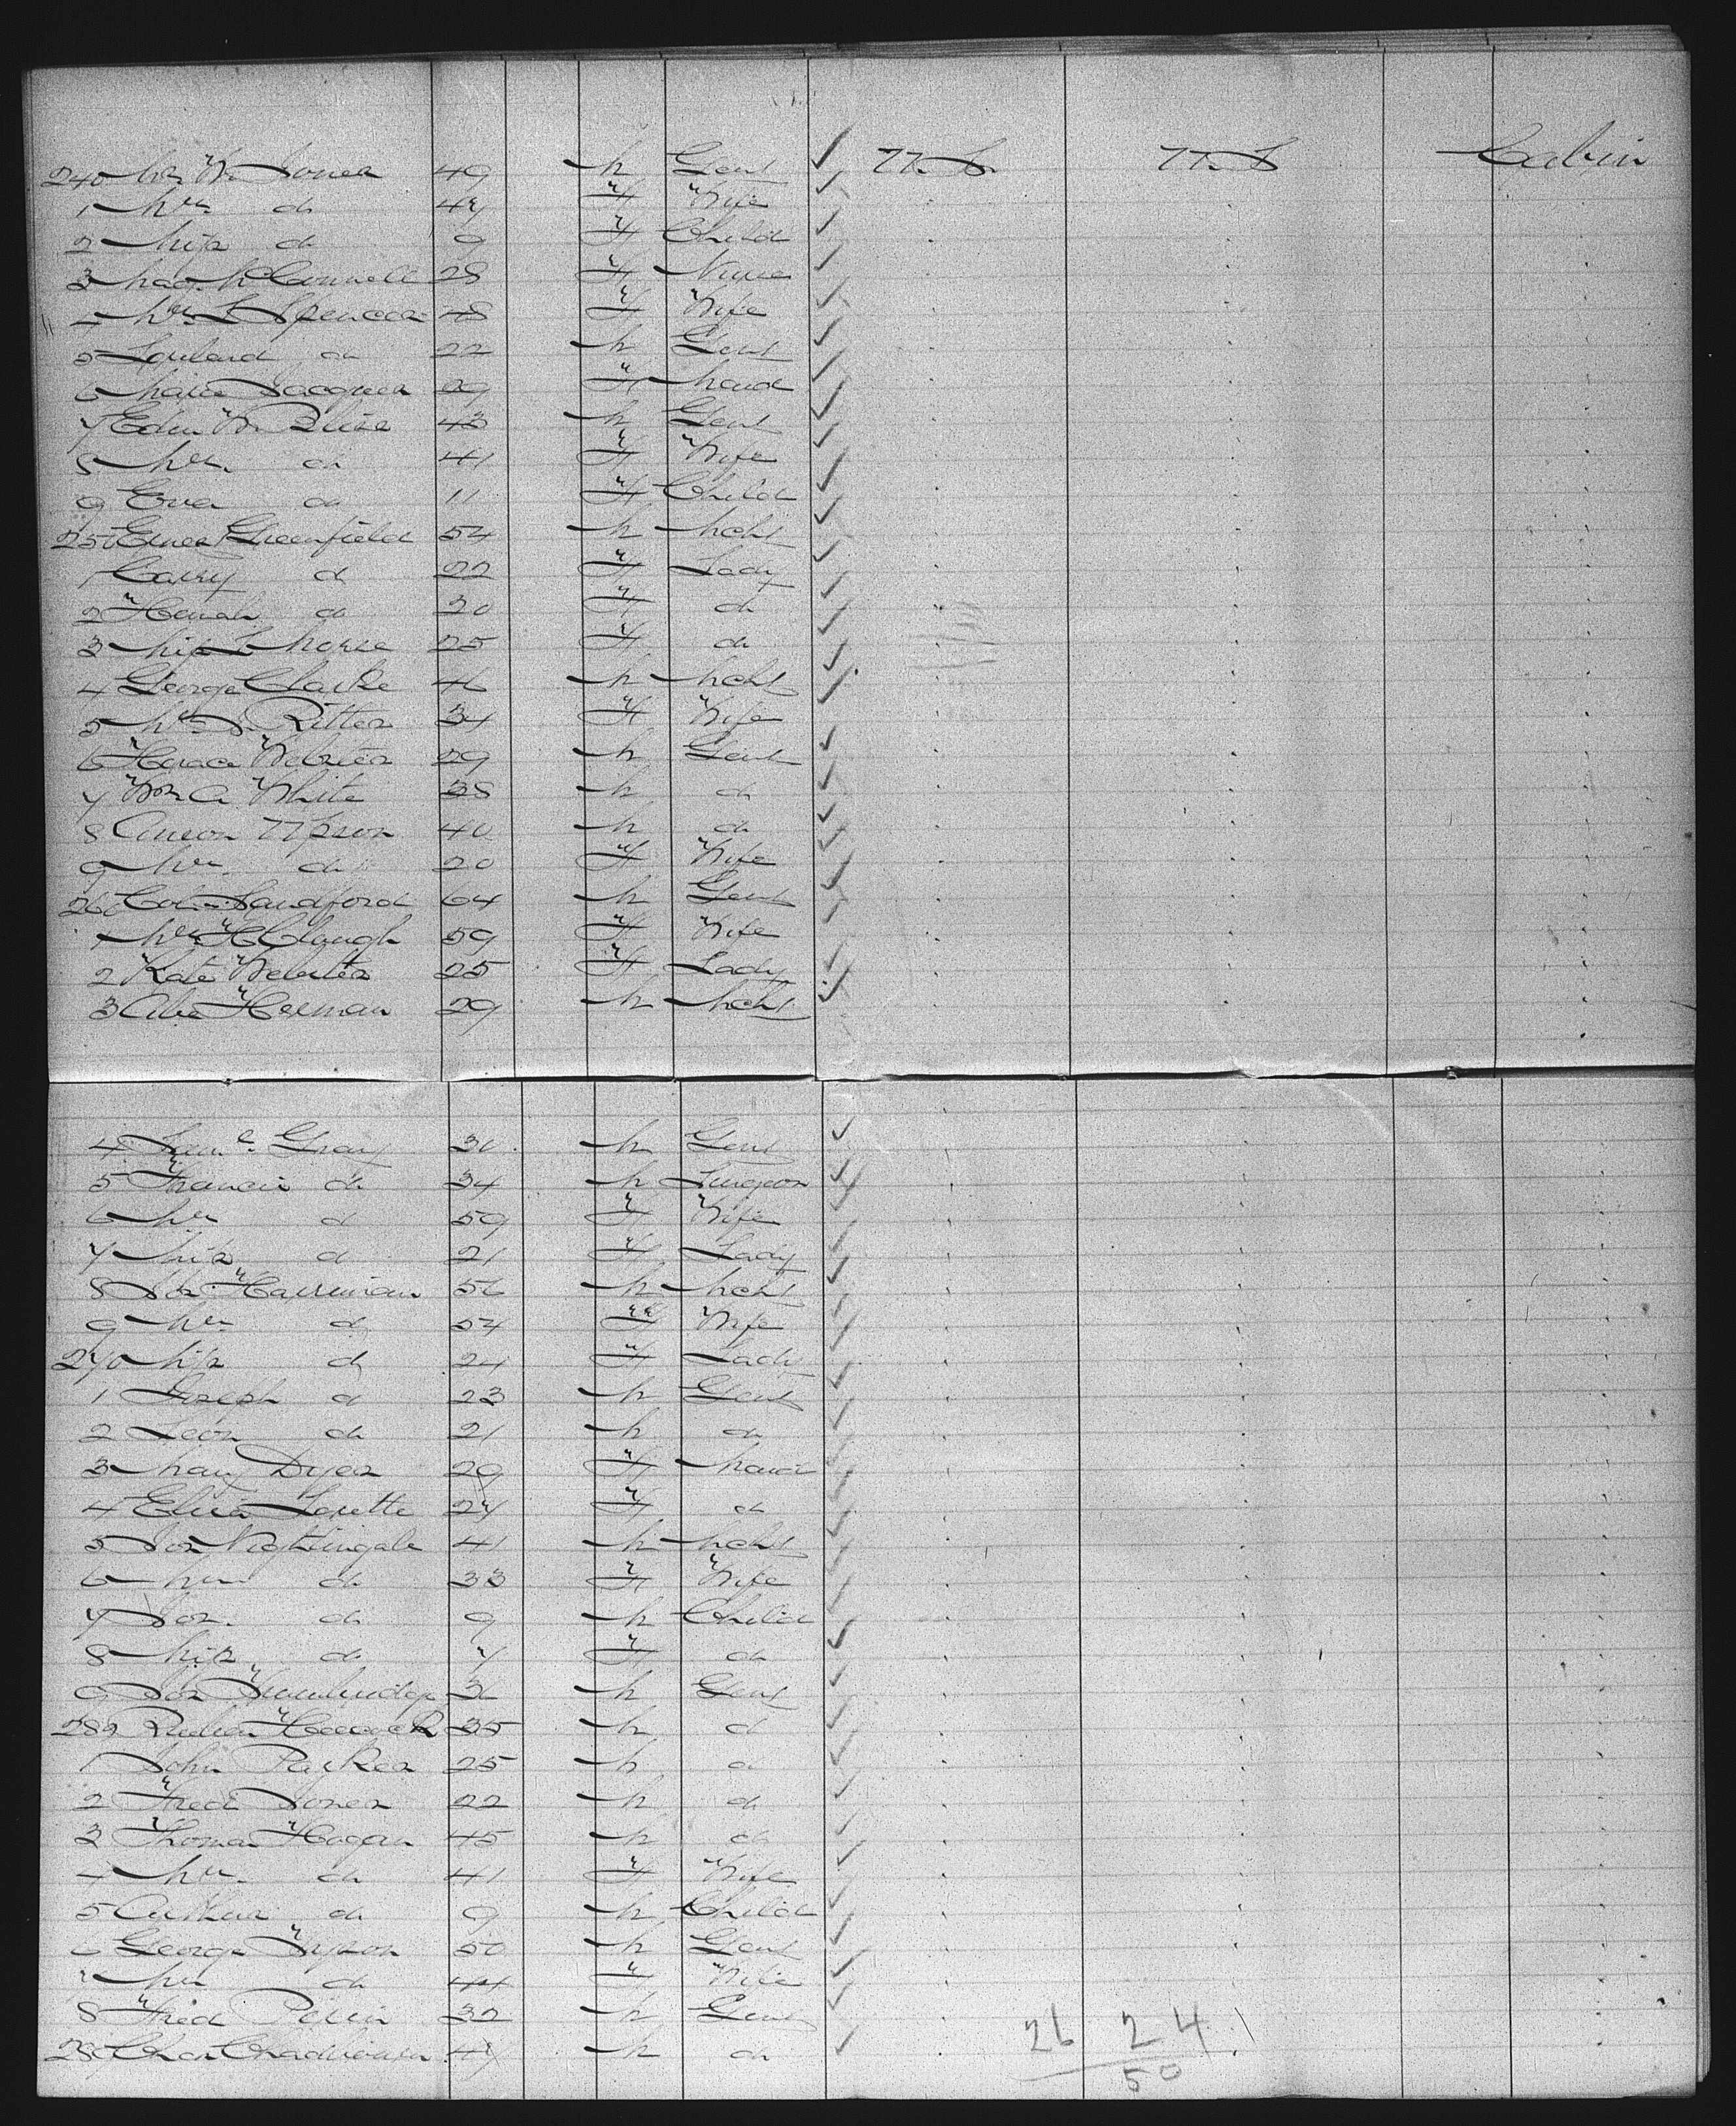 240 Mr W. Jones 49 M Gent ✓ U.S. U.S Cabin
1 Mrs do 47 F Wife ✓
2 Miss do 9 F Child ✓
3 McConnell 28 F Nurse ✓
4 Mrs L Spencer 48 F Wife ✓
5 Lorillard do 22 M Gent ✓
6 Marie Jacques 29 F Maid ✓
7 Edw W. Bliss 43 M Gent ✓
8 Mrs do 41 F Wife ✓
9 Eva do 11 F Child ✓
250 Greenfield 54 M Mcht ✓
1 Carry do 22 F Lady ✓
2 do 20 F do ✓
3 Miss L Morse 25 F do ✓
4 George Clarke 46 M Mcht ✓
5 Mrs Ritter 34 F Wife ✓
6 Horace Webster 29 M Gent ✓
7 Wm A White 38 M do ✓
8 Anson Upson 40 M do ✓
9 Mrs do 20 F Wife ✓
260 Sandford 64 M Gent ✓
1 Mrs H Clough 59 F Wife ✓
2 Kate Webster 25 F Lady ✓
3 Abe Herman 29 M Mcht ✓
4 Saml Gray 30 M Gent ✓
5 Francis do 34 M Surgeon ✓
6 Mrs do 59 F Wife ✓
7 Miss do 21 F Lady ✓
8 Harriman 56 M Mcht ✓
9 Mrs do 54 F Wife ✓
270 Miss do 24 F Lady ✓
1 Joseph do 23 M Gent ✓
2 Leon do 21 M do ✓
3 Mary Dyer 29 F Maid ✓
4 Eliza Lorette 27 F do ✓
5 Jos Nightingale 41 M Mcht ✓
6 Mrs do 33 F Wife ✓
7 do 9 M Child ✓
8 Miss do 7 F do ✓
9 36 M Gent ✓
280 35 M do ✓
1 John Parker 25 M do ✓
2 Fred Jones 22 M do ✓
3 Thomas Hogan 45 M do ✓
4 Mrs do 41 F Wife ✓
5 Arthur do 9 M Child ✓
6 George Tyson 50 M Gent ✓
7 Mrs do 44 F Wife ✓
8 Fred 32 M Gent ✓
289 Chas 47 M do ✓
26 24
50